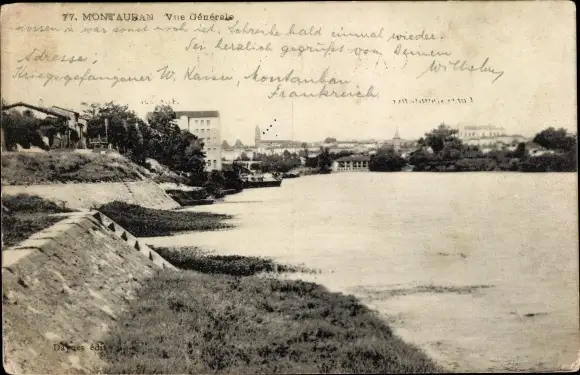 77. MONTAUBAN Vue Générale
was sonst noch ist. Schreibe bald einmal wieder.
Sei herzlich gegrüßt von Deinem
Adresse:
Wilhelm.
Kriegsgefangener W. Kaiser, Montauban
Frankreich.